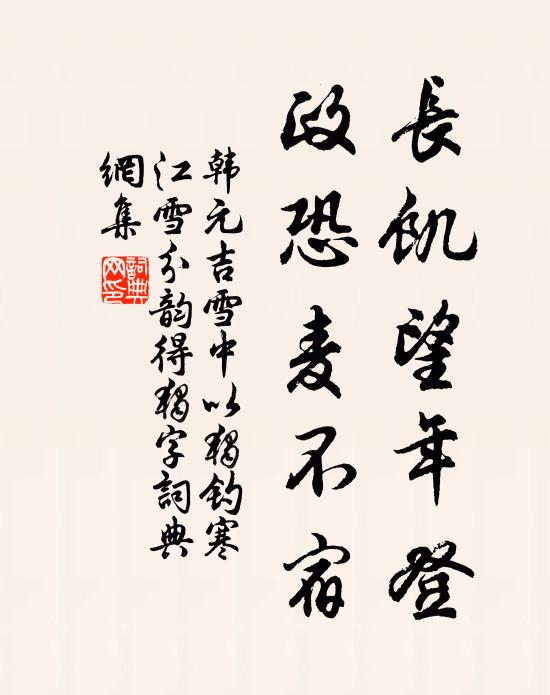 長飢望年登
政恐麦不宿
韩元吉雪中以独钓寒
江雪分韵得独字詞典
網集
詞典網印